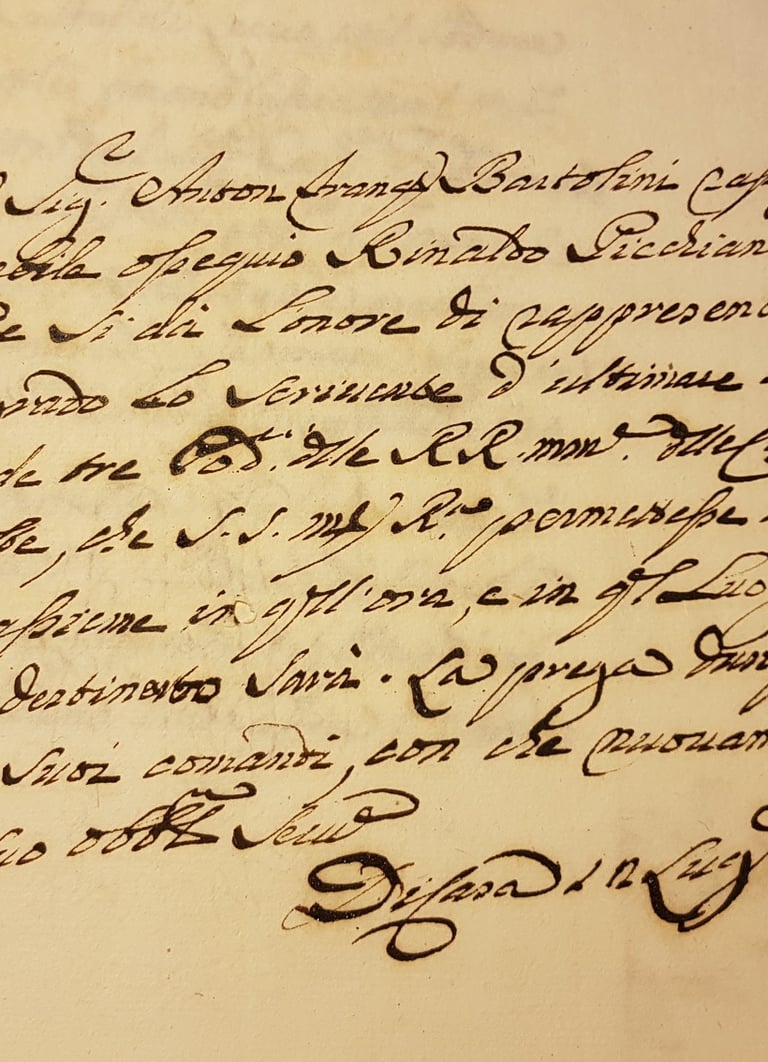 Sig.r Anton Franco Bartolini Cap
ebile ossequio Rinaldo Picchian
e si dà l'onore di rappresen
rado lo Scrivente d'ultimare
de tre Pod.i dlle RR. mon. dlle C
be, che S. S. M R.ma permettesse
assieme in qll'ora, e in ql Luo
destinato sarà. La prega dunq
suoi comandi, con che nuovam
uo obb Serv
Di Casa 12 Lug